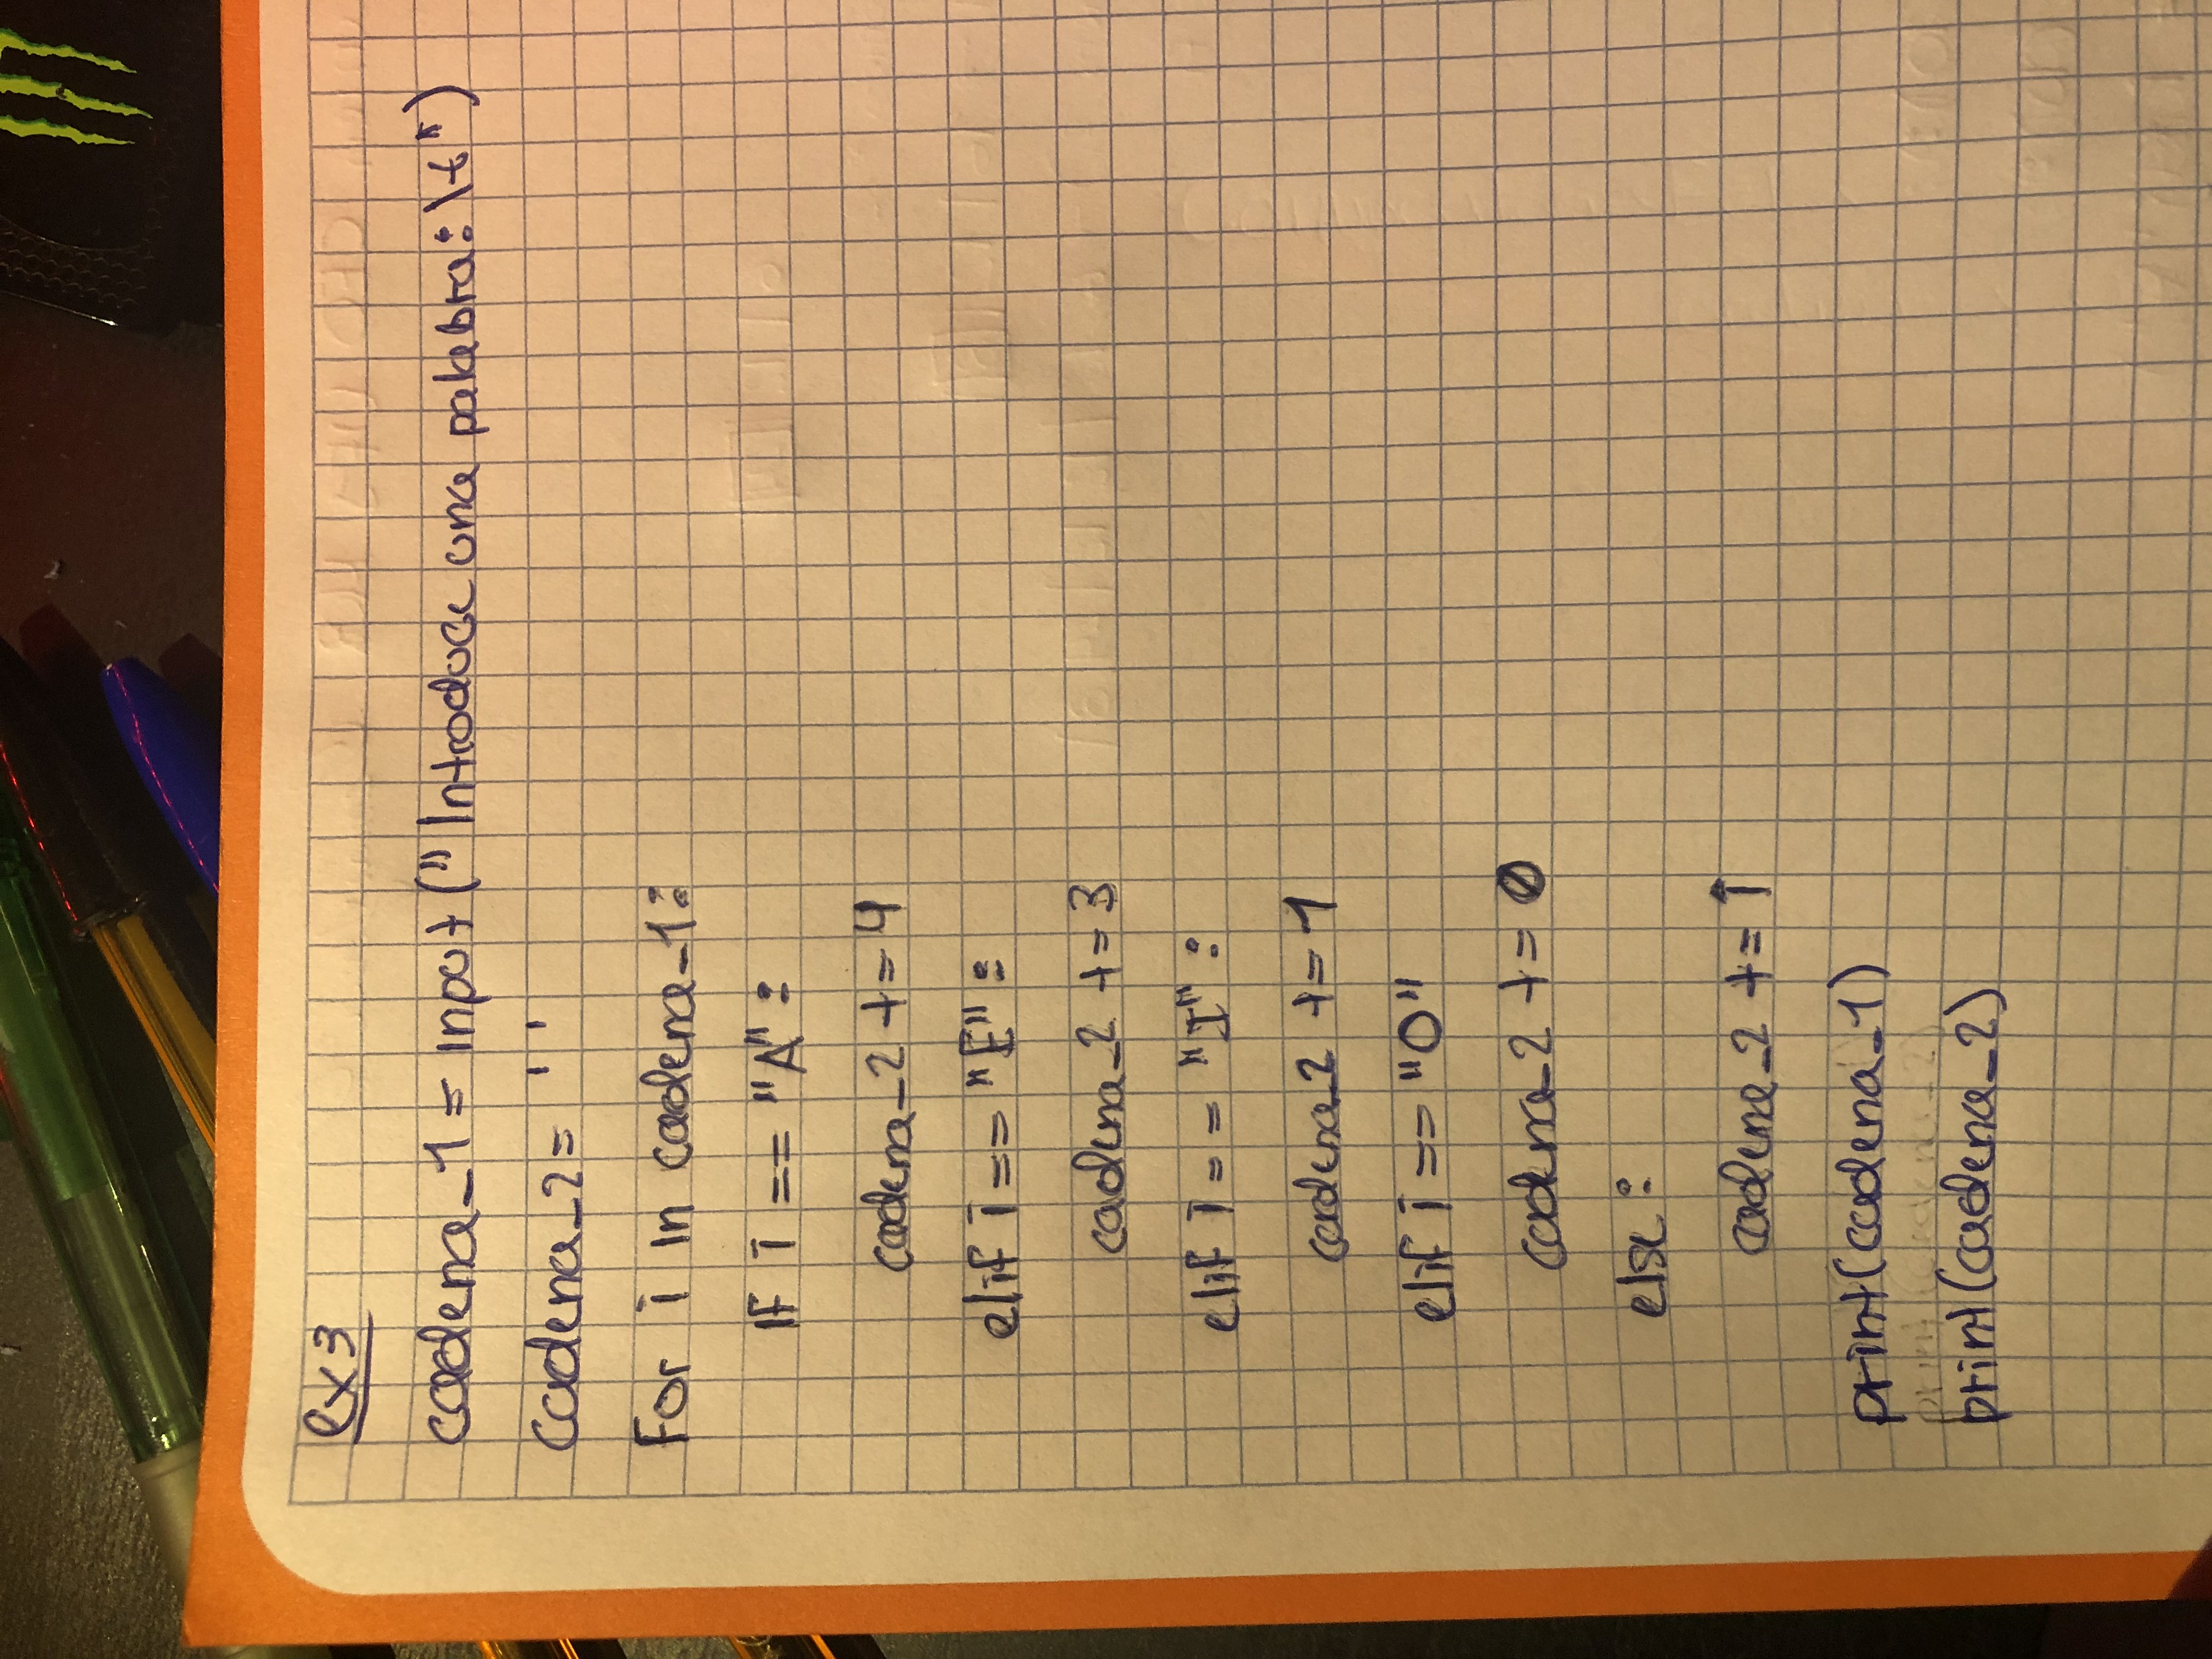 ex3
cadena_1 = input ("Introduce una palabra: \t")
cadena_2 = ' '
For i in cadena_1:
    if i == "A":
        cadena_2 += 4
    elif i == "E":
        cadena_2 += 3
    elif i == "I":
        cadena_2 += 1
    elif i == "O"
        cadena_2 += 0
    else:
        cadena_2 += i
print(cadena_1)
print(cadena_2)
print(cadena_2)